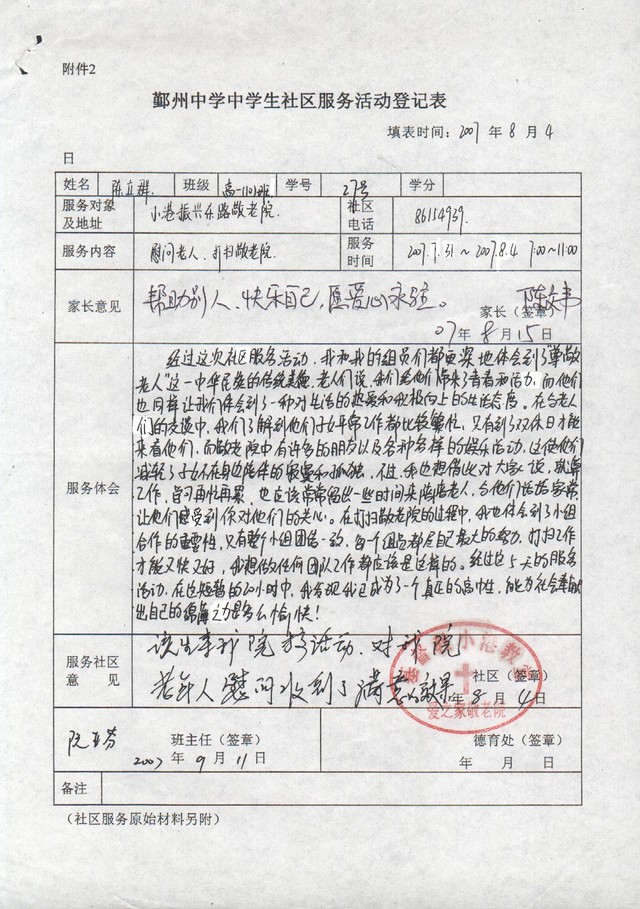 附件2
鄞州中学中学生社区服务活动登记表
填表时间：2007 年 8 月 4
日
姓名 陈立群 班级 高一(10)班 学号 27号 学分
服务对象及地址 小港振兴东路敬老院 社区电话 86154939
服务内容 慰问老人、打扫敬老院 服务时间 2007.7.31～2007.8.4 7:00～11:00
家长意见 帮助别人、快乐自己，愿爱心永驻。
家长（签章）
07年 8月 15日
服务体会
经过这次社区服务活动，我和我的组员们都更深地体会到了“尊敬
老人”这一中华民族的传统美德。老人们说，我们给他们带来了青春和活力，而他们
也同样让我们体会到了一种对生活的热爱和积极向上的生活态度。在与老人
们的交谈中，我们了解到他们子女平常工作都比较繁忙，只有到了双休日才能
来看他们，而敬老院中有许多的朋友以及各种各样的娱乐活动，这使他们
减轻了子女不在身边陪伴的寂寞和孤独，不过，我也想借此对大家说，就算
工作，学习再忙再累，也应该常常留出一些时间来陪陪老人，与他们话话家常，
让他们感受到你对他们的关心。在打扫敬老院的过程中，我也体会到了小组
合作的重要性，只有整个小组团结一致，每个组员都尽自己最大的努力，打扫工作
才能又快又好，我想做任何团队工作都应该是这样的。经过这5天的服务
活动，在这短暂的20小时中，我发现我已成为了一个真正的高中生，能为社会奉献
出自己的绵薄之力是多么愉快！
服务社区意见
该生来我院搞活动，对我院
老年人慰问收到了满意的效果
社区（签章）
年 8 月 4 日
小港教
爱之家敬老院
班主任（签章）
2007 年 9 月 11 日
德育处（签章）
年 月 日
备注
（社区服务原始材料另附）